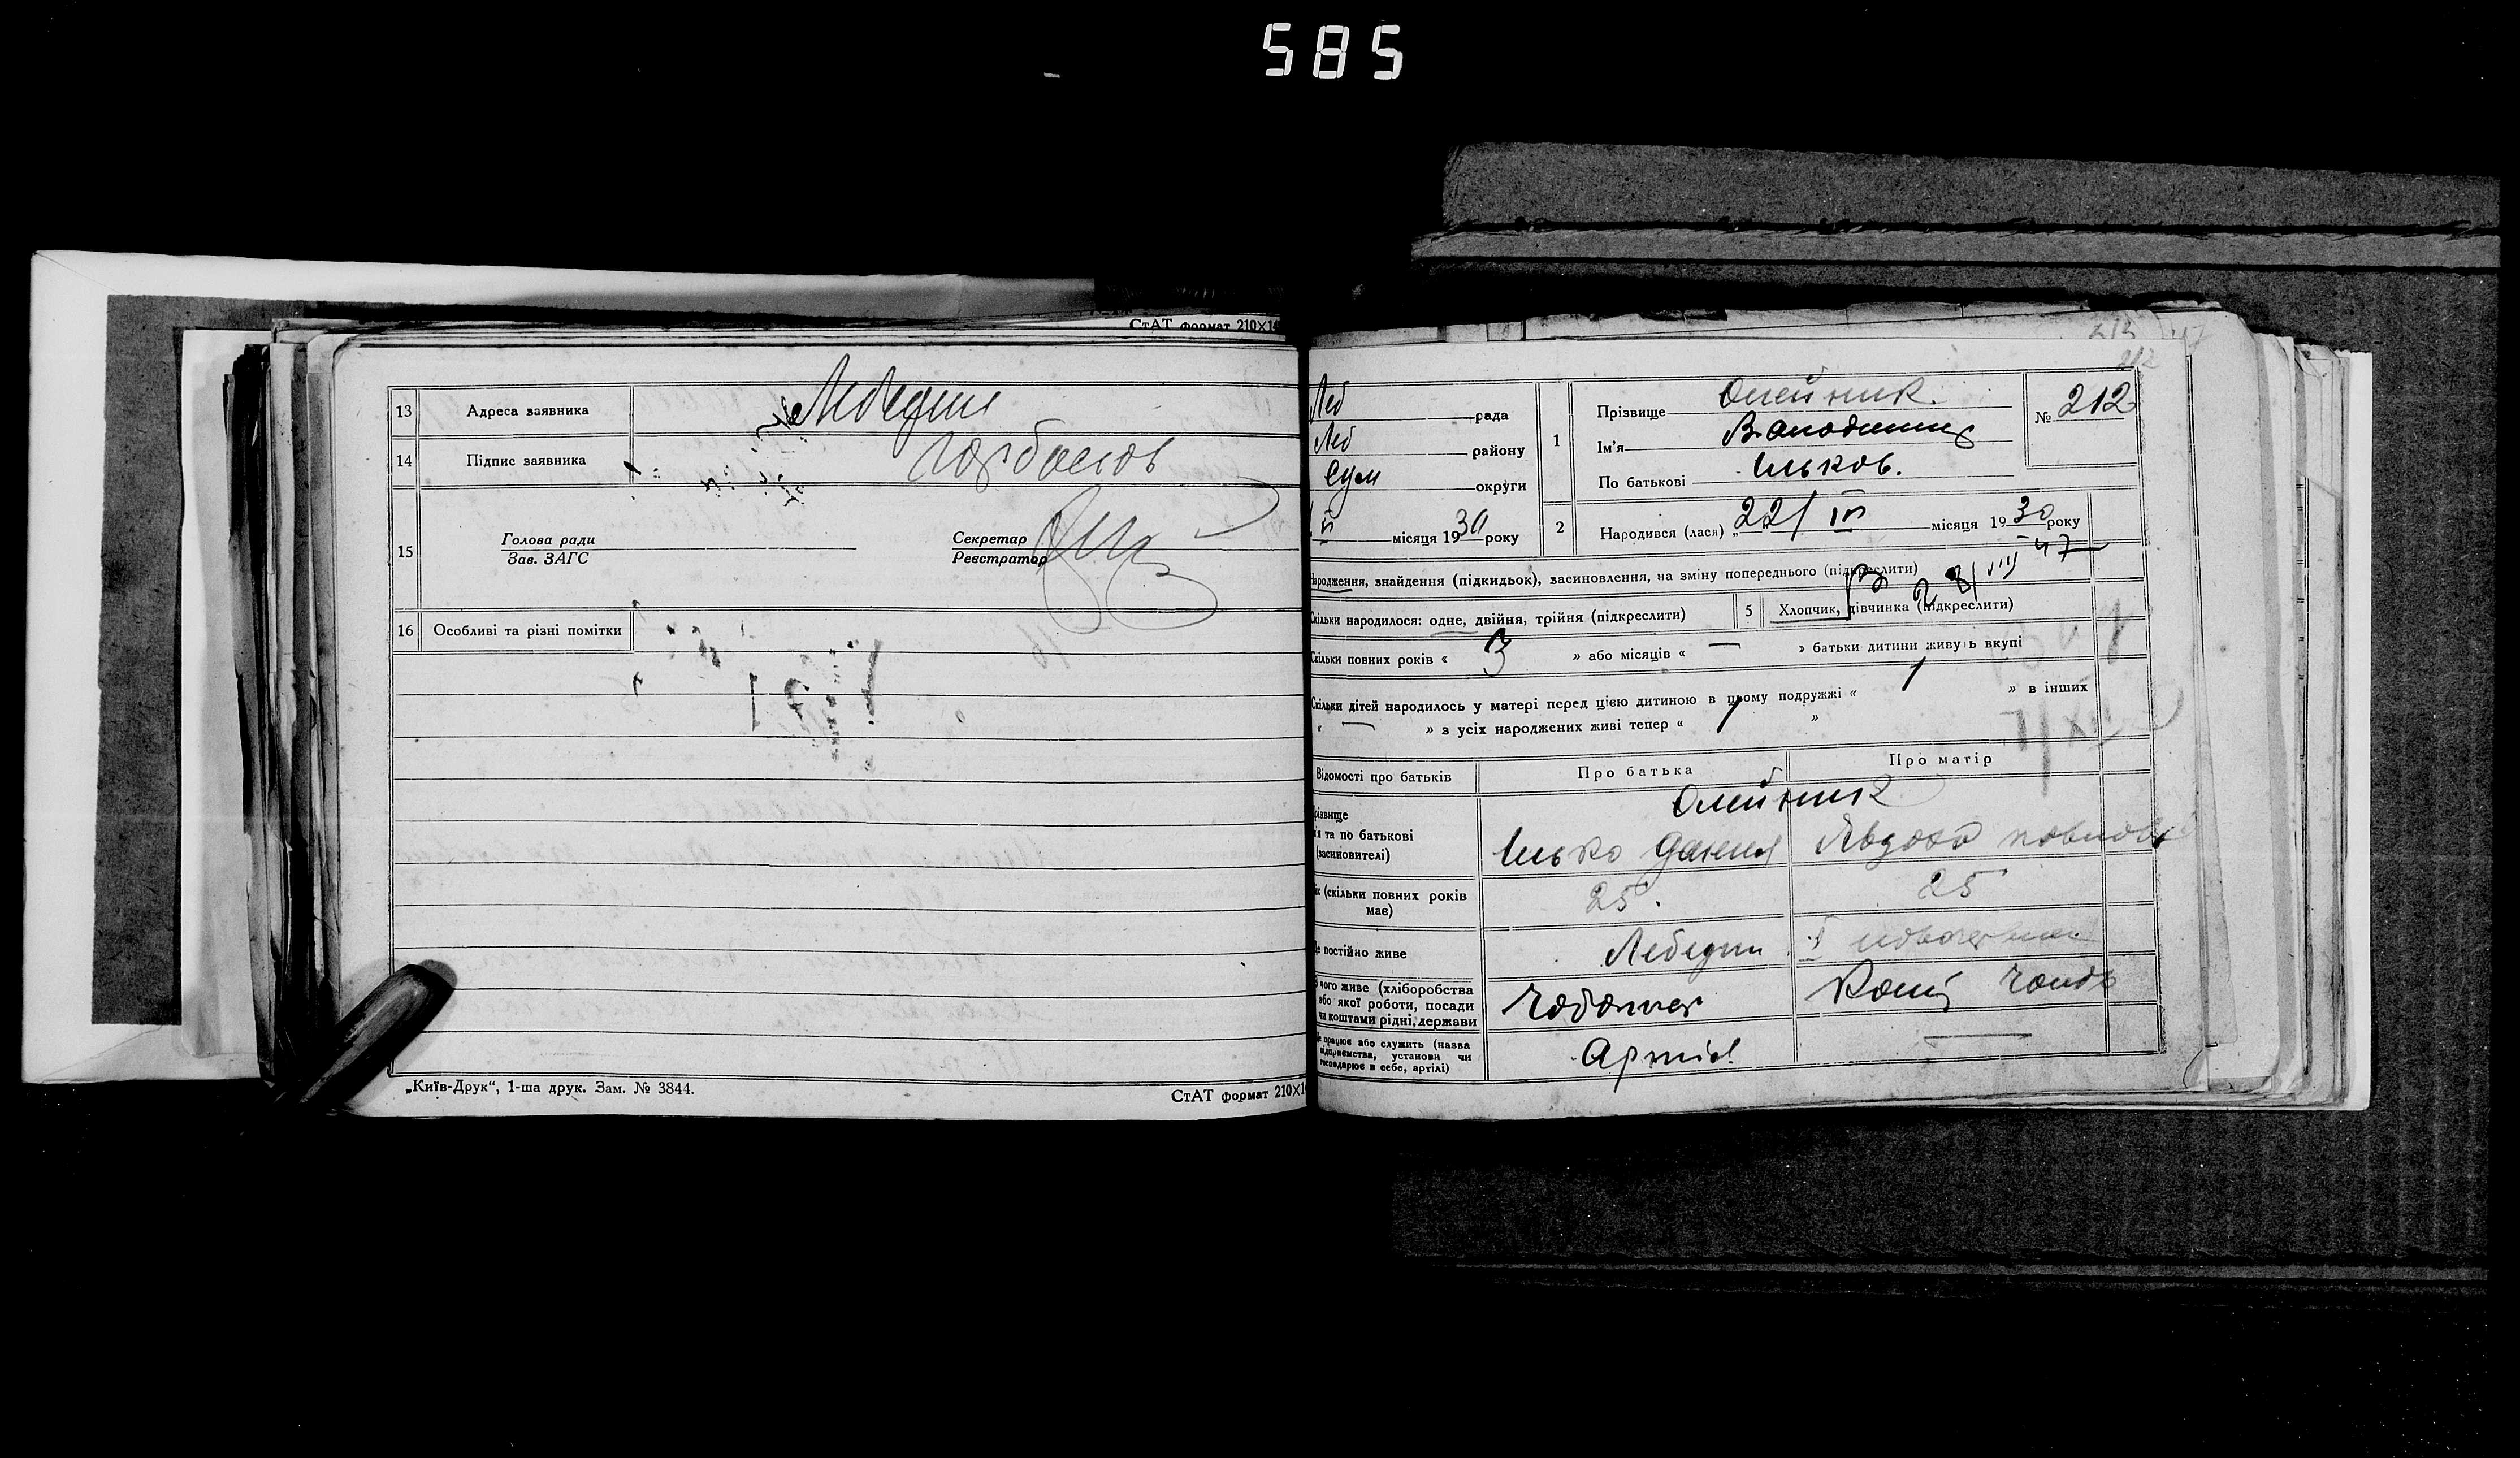 585
СтАТ формат 210X14
13 Адреса заявника Лебедин
14 Підпис заявника
15 Голова ради
Зав. ЗАГС
Секретар
Реєстратор
16 Особливі та різні помітки
„Київ-Друк“, 1-ша друк. Зам. № 3844.
СтАТ формат 210X1
Леб рада
Леб району
Сум округи
VI місяця 1930 року
1 Прізвище Олейник
Ім'я Володимир
По батькові Ільков.
№ 212
2 Народився (лася) „22/ III місяця 1930 року
Народження, знайдення (підкидьок), засиновлення, на зміну попереднього (підкреслити)
28/VIII 47
Скільки народилося: одне, двійня, трійня (підкреслити)
5 Хлопчик, дівчинка (підкреслити)
Скільки повних років « 3 » або місяців « — » батьки дитини живуть вкупі
Скільки дітей народилось у матері перед цією дитиною в цьому подружжі « 1 » в інших
« — » з усіх народжених живі тепер « 1 »
Відомості про батьків Про батька Про матір
Олейник
різвище
'я та по батькові
(засиновителі)
Ілько Данил Явдоха Павлов
ік (скільки повних років
має)
25. 25
е постійно живе Лебедин
З чого живе (хліборобства
або якої роботи, посади
чи коштами рідні, держави
Чоботар
е працює або служить (назва
підприємства, установи чи
господарює в себе, артілі)
Артіл —